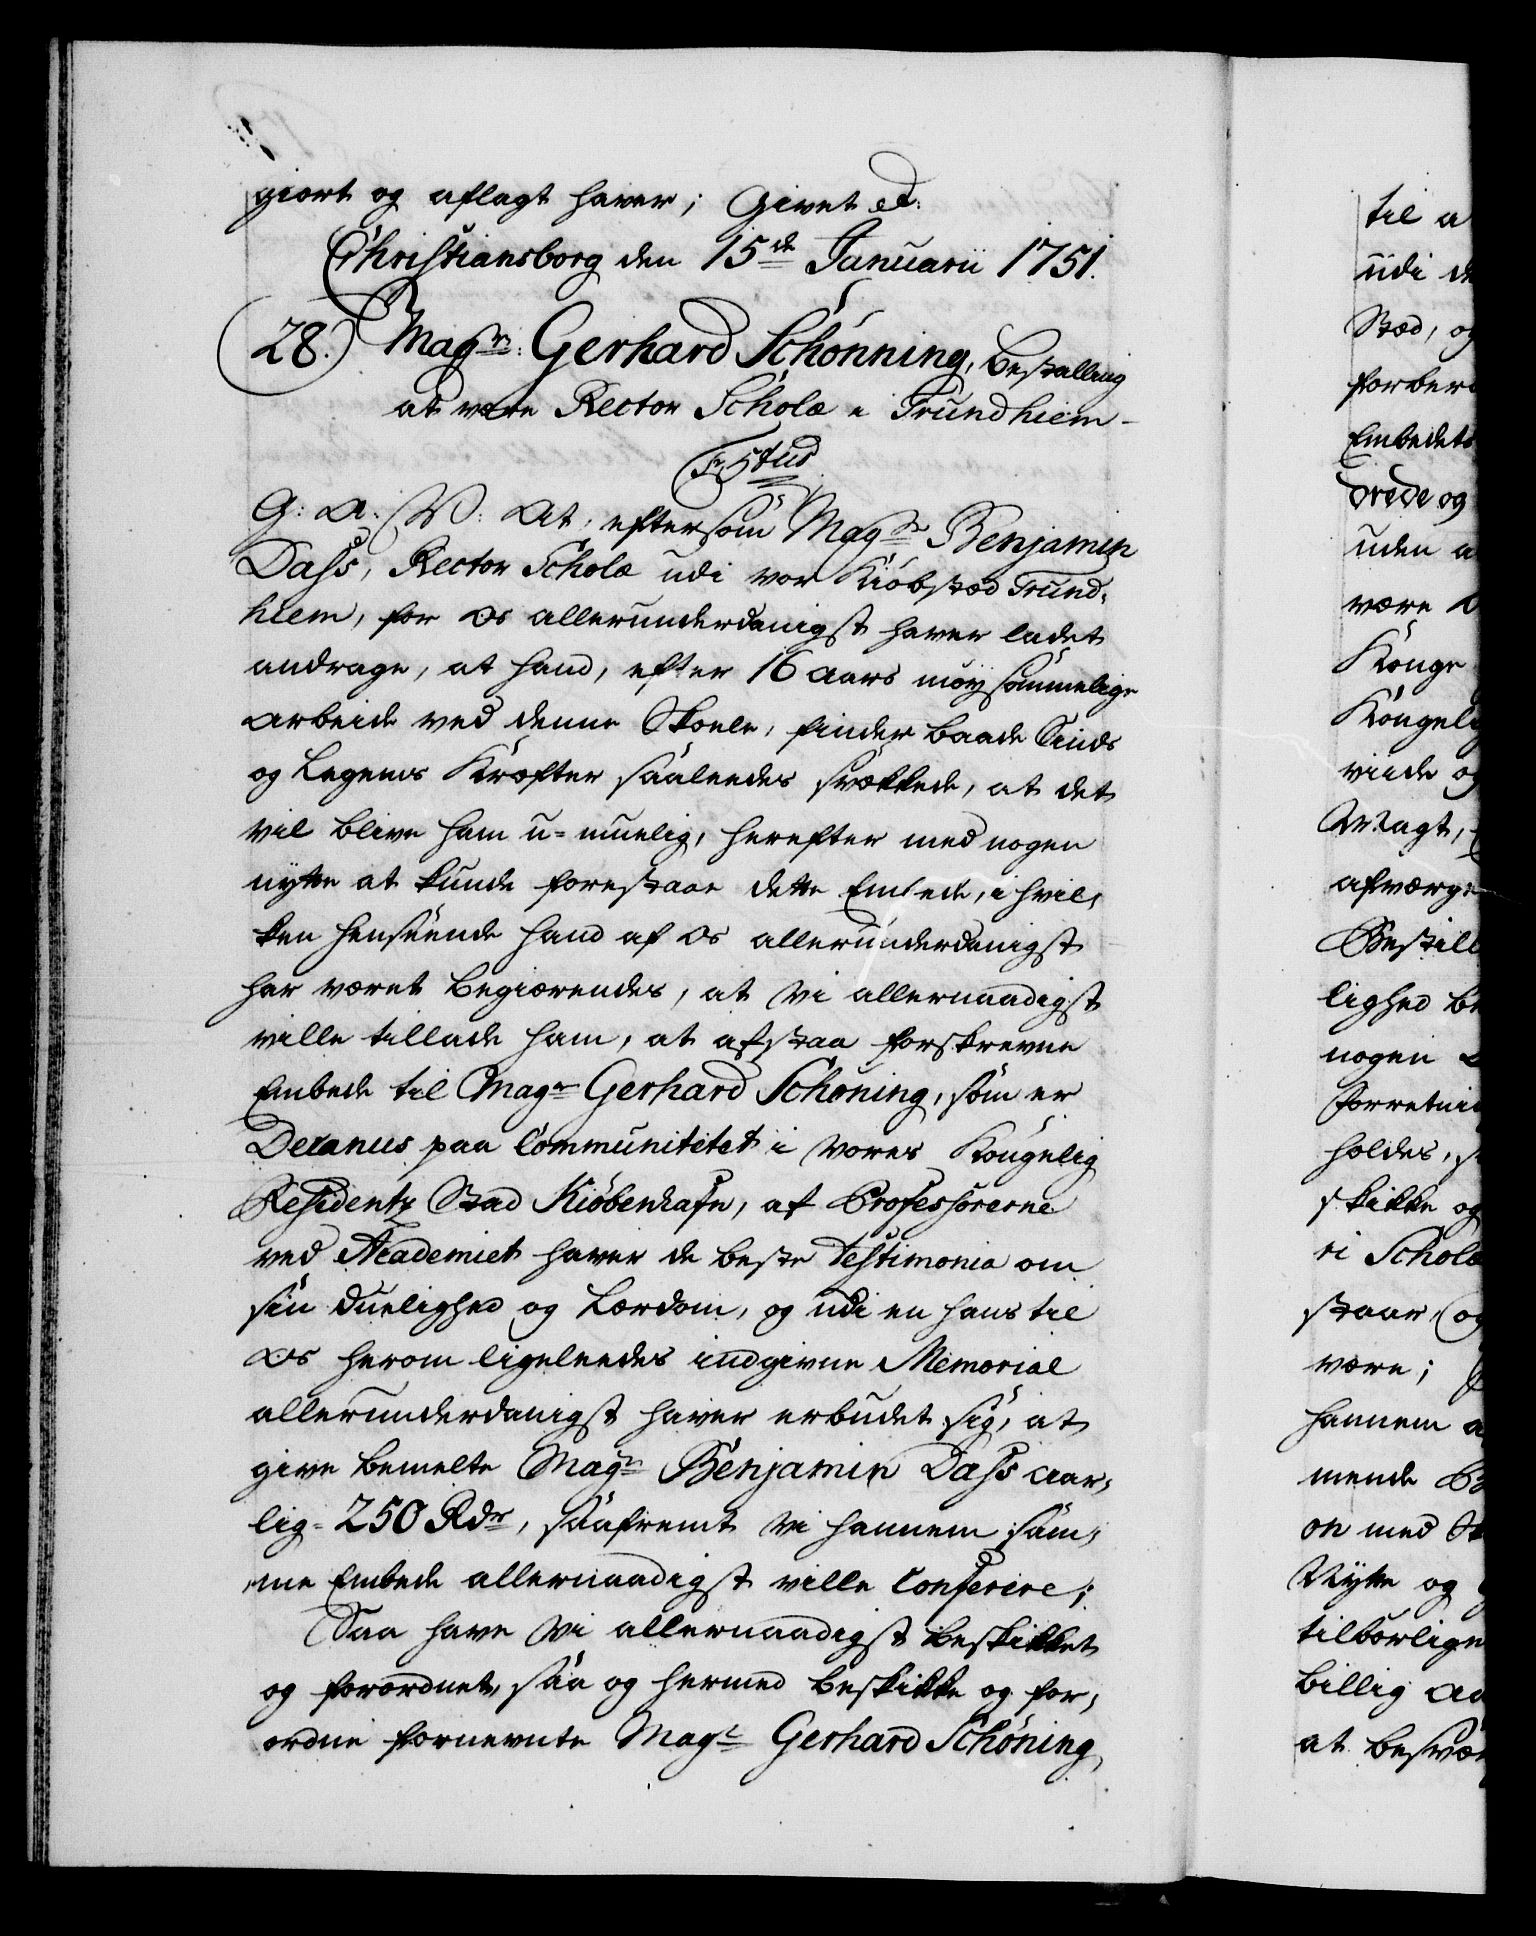 giort og aflagt haver; Givet et:
Christiansborg den 15de Januarii 1751.
28.) Magr: Gerhard Schönning, Bestalling
at være Rector Scholæ i Trundhiem.
F: 5tus
G: A: V: At, eftersom Magr Benjamin
Dass, Rector Scholæ udi vor Kiöbstæd Trund-
hiem, for Os allerunderdanigst haver ladet
andrage, at hand, efter 16 Aars möysommelige
Arbeide ved denne Skoele, finder baade Sinds
og Legems Kræfter saaleedes svækkede, at det
vil blive ham u-muelig, herefter med nogen
nytte at kunde forestaae dette Embede, i hvil-
ken henseende hand af Os allerunderdanigst
har været begiærendes, at Vi allernaadigst
ville tillade ham, at afstaa forskrevne
Embede til Magr Gerhard Schöning, som er
Decanus paa Communitetet i Vores Kongelig
Residentz Stad Kiöbenhafn, af Professorerne
ved Academiet haver de beste Testimonia om
sin Duelighed og Lærdom, og udi en hans til
Os herom ligeleedes indgivne Memorial
allerunderdanigst haver erbudet sig, at
give bemelte Magr Benjamin Dass aar-
lig 250 Rdr, saafremt Vi hannem sam-
me Embede allernaadigst ville Conferere;
Saa have Vi allernaadigst beskikket
og forordnet, saa og hermed beskikke og for-
ordne fornevnte Magr Gerhard Schöning,
til a
udi de
Stæd, og
forbere
Embedets
Vrede og
uden a
være
Konge
Kongeli
viide og
Magt,
afværge
Bestill
lighed be
nogen
Forretni
holdes, s
skikke og
ri Scholæ
staar, og
være;
hannem a
mende
on med Sk
Nytte og
tilbörlige
billig
at besvær